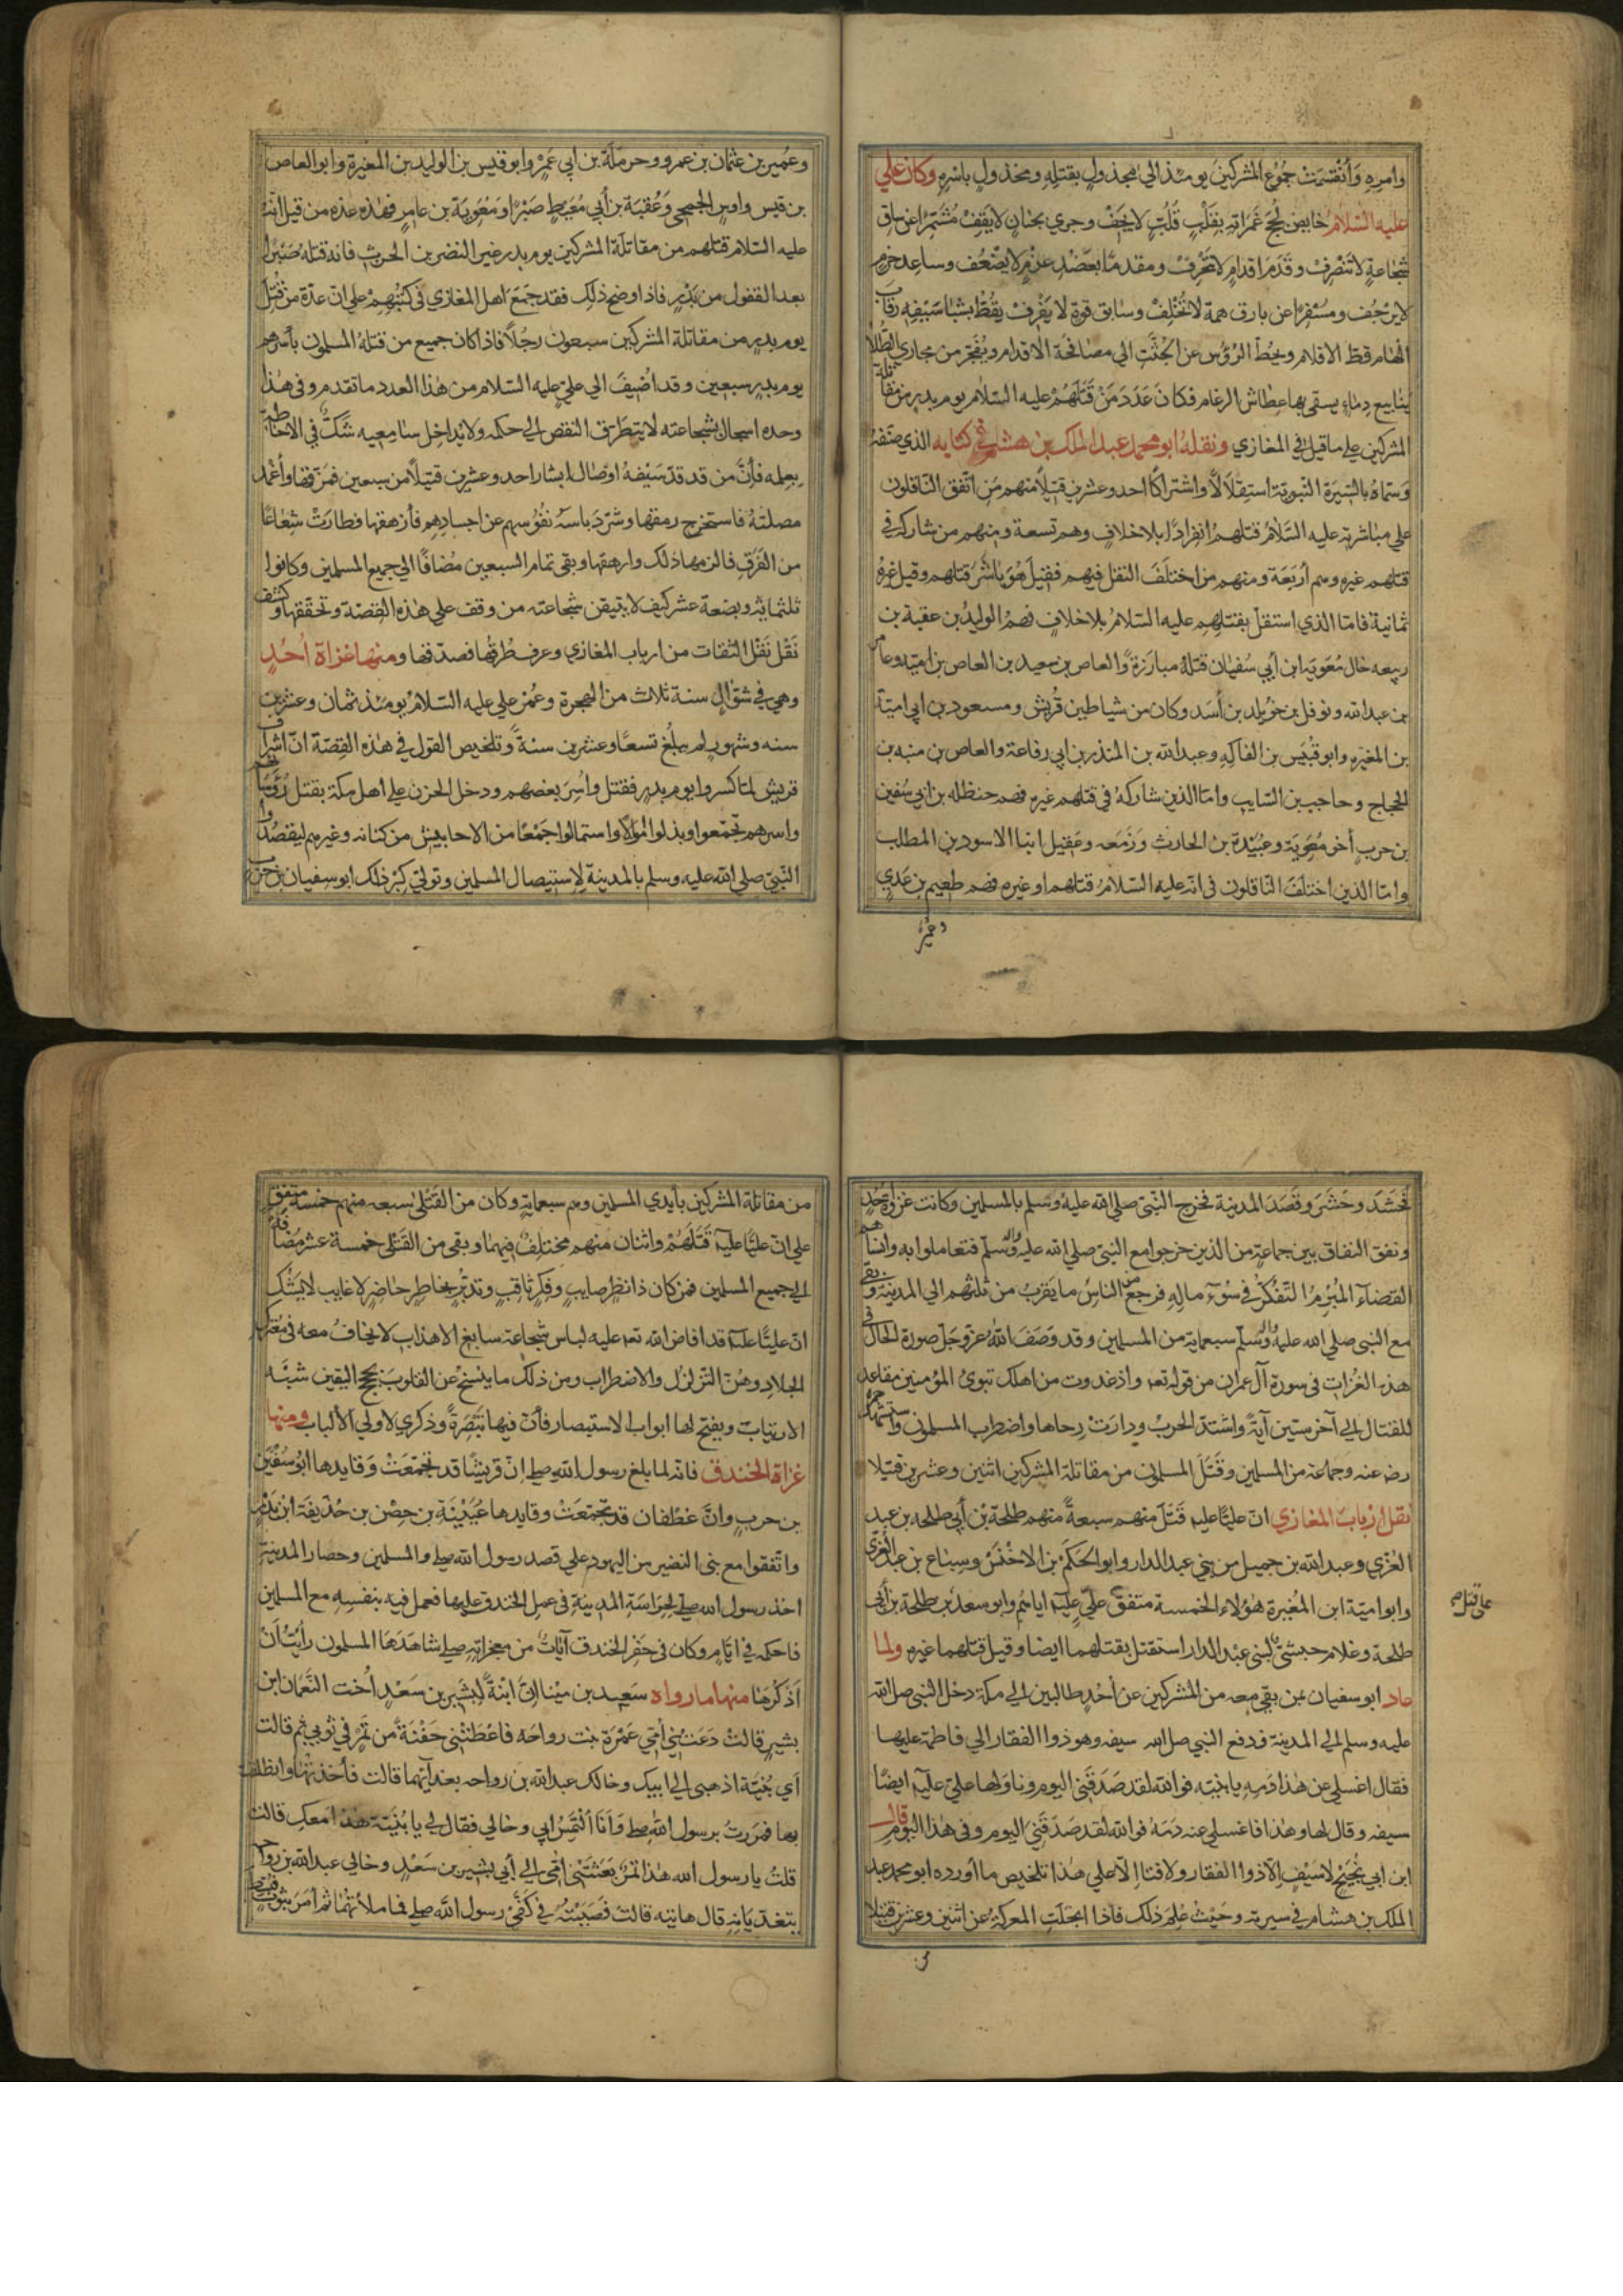 وامره وانقسمت جموع المشركين يومئذ الى مجدول بقتله ومخذول باسره وكان علي
عليه السلام خايض لجج غمراته بقلب قلب لا يجف وجري بجنان لا يقف مشمرا عن ساق
شجاعة لا تنصرف وقدم اقدام لا تحرف ومقدما بعضد عزم لا يضعف وساعد حزم
لا يرجف ومسفرا عن بارق همة لا تخلف وسابق قوة لا يقرف يقط بشبا سيفه رقاب
الهام قط الاقلام ويحط الرؤس عن الجثث الى مصافحة الاقدام ويفجر من مجاري الطلا
ينابيع دماء يسقى بها عطاش الرغام فكان عدد من قتلهم عليه السلام يوم بدر من مقاتلة
المشركين على ما قيل في المغازي ونقله ابو محمد عبد الملك بن هشام في كتابه الذي صنفه
وسماه بالسيرة النبوية استقلالا واشتراكا احد وعشرين قتيلا منهم من اتفق الناقلون
على مباشرته عليه السلام قتلهم انفرادا بلا خلاف وهم تسعة ومنهم من شاركه في
قتلهم غيره وهم أربعة ومنهم من اختلف النقل فيهم فقيل هو باشر قتلهم وقيل غيره
ثمانية فاما الذي استقل بقتلهم عليه السلام بلا خلاف فهم الوليد بن عقبة بن
ربيعه خال معوية ابن أبي سفيان قتله مبارزة والعاص بن سعيد بن العاص بن امية وعامر
بن عبد الله ونوفل بن خويلد بن أسد وكان من شياطين قريش ومسعود بن ابي امية
بن المغيره وابو قيس بن الفاكه وعبد الله بن المنذر بن ابي رفاعة والعاص بن منبه بن
الحجاج وحاجب بن السايب واما الذين شاركه في قتلهم غيره فهم حنظله بن ابي سفين
بن حرب أخو معوية وعبيدة بن الحارث وزمعه وعقيل ابنا الاسود بن المطلب
واما الذين اختلف الناقلون في انه عليه السلام قتلهم او غيره فهم طعيم بن عدي
وعمير
وعمير بن عثمان بن عمرو وحرملة بن ابي عمر وابو قيس بن الوليد بن المغيرة وابو العاص
بن قيس واوس الجمحي وعقبة بن أبي معيط صبرا ومعوية بن عامر فهذه عدة من قيل انه
عليه السلام قتلهم من مقاتلة المشركين يوم بدر غير النضر بن الحرث فانه قتله صبرا
بعد القفول من بدر فاذا وضح ذلك فقد جمع اهل المغازي في كتبهم على ان عدة من قتل
يوم بدر من مقاتلة المشركين سبعون رجلا فاذا كان جميع من قتله المسلمون بأسرهم
يوم بدر سبعين وقد اضيف الى علي عليه السلام من هذا العدد ما تقدم وفي هذا
وحده اسجال بشجاعته لا يتطرق النقص الى حكمه ولا يداخل سامعيه شك في الاحاطة
بعلمه فأن من قد قد سيفه اوصال ابشار احد وعشرين قتيلا من سبعين فمزقها وأغمد
مصلته فاستخرج رمقها وشرد باسه نفوسهم عن اجسادهم فأزهقها فطارت شعاعا
من الفرق فالزمها ذلك وارهقها وبقى تمام السبعين مضافا الى جميع المسلمين وكانوا
ثلثمائة وبضعة عشر كيف لا يتيقن شجاعته من وقف على هذه القصة وتحققها وكشف
نقل نقل الثقات من ارباب المغازي وعرف طرقها فصدقها ومنها غزاة احد
وهي في شوال سنة ثلاث من الهجرة وعمر علي عليه السلام يومئذ ثمان وعشرين
سنه وشهورا لم يبلغ تسعا وعشرين سنة وتلخيص القول في هذه القصة ان اشراف
قريش لما كسروا يوم بدر فقتل واسر بعضهم ودخل الحزن على اهل مكة بقتل رؤسائهم
واسرهم تجمعوا وبذلوا اموالا واستمالوا جمعا من الاحابيش من كنانه وغيرهم ليقصدوا
النبي صلى الله عليه وسلم بالمدينة لاستيصال المسلمين وتولى كبر ذلك ابو سفيان بن حرب
فحشد وحشر وقصد المدينة فخرج النبي صلى الله عليه وسلم بالمسلمين وكانت غزوة احد
ونفق النفاق بين جماعة من الذين خرجوا مع النبي صلى الله عليه واله وسلم فتعاملوا به وانساهم
القضاء المبرم التفكر في سوء ماله فرجع من الناس ما يقرب من ثلثهم الى المدينة وبقى
مع النبي صلى الله عليه واله وسلم سبعمايه من المسلمين وقد وصف الله عز وجل صورة الحال في
هذه الغزاة في سورة آل عمران من قوله تعه واذ غدوت من اهلك تبوئ المؤمنين مقاعد
للقتال الى آخر ستين آية واشتد الحرب ودارت رحاها واضطرب المسلمون واستشهد حمزة
رضه عنه وجماعة من المسلمين وقتل المسلمون من مقاتلة المشركين اثنين وعشرين قتيلا
نقل ارباب المغازي ان عليا عليه قتل منهم سبعة منهم طلحة بن أبي طلحه بن عبد
العزي وعبد الله بن جميل من بني عبد الدار وابو الحكم بن الاخنس وسباع بن عبد العزى
وابو امية ابن المغيرة هؤلاء الخمسة متفق على عليه اياهم وابو سعد بن طلحة بن أبي
على قتل
طلحة وغلام حبشي لبني عبد الدار استقل بقتلهما ايضا وقيل قتلهما غيره ولما
عاد ابو سفيان بمن بقى معه من المشركين عن أحد طالبين الى مكة دخل النبي صلى الله
عليه وسلم الى المدينة فدفع النبي صلى الله سيفه وهو ذو الفقار الى فاطمة عليها
فقال اغسلي عن هذا دمه يا بنيه فوالله لقد صدقني اليوم وناولها علي عليه ايضا
سيفه وقال لها وهذا فاغسلي عنه دمه فوالله لقد صدقني اليوم وفي هذا اليوم قال
ابن ابي نجيح لا سيف الا ذو الفقار ولا فتا الا علي هذا تلخيص ما أورده ابو محمد عبد
الملك بن هشام في سيرته وحيث علم ذلك فاذا انجلت المعركة عن اثنين وعشرين قتيلا
من
من مقاتلة المشركين بأيدي المسلمين وهم سبعماية وكان من القتلى سبعه منهم خمسة متفق
على ان عليا عليه قتلهم واثنان منهم مختلف فيهما وبقى من القتلى خمسة عشر مضافة
الى جميع المسلمين فمن كان ذا نظر صايب وفكر ثاقب وتدبر بخاطر حاضر لا غايب لا يشك
ان عليا عليه قد افاض الله تعه عليه لباس شجاعة سابغ الاهذاب لا يخاف معه في معرك
الجلاد وهن التزلزل والاضطراب ومن ذلك ما ينسخ عن القلوب بحجج اليقين شبه
الارتياب ويفتح لها ابواب الاستبصار فأن فيها تبصرة وذكري لاولي الألباب ومنها
غزاة الخندق فانه لما بلغ رسول الله صلى ان قريشا قد تجمعت وقايدها ابو سفين
بن حرب وان غطفان قد تجمعت وقايدها عيينة بن حصن بن حذيفة ابن بدر
واتفقوا مع بني النضير من اليهود على قصد رسول الله صلى والمسلمين وحصار المدينة
اخذ رسول الله صلى لحراسة المدينة في عمل الخندق عليها فعمل فيه بنفسه مع المسلمين
فاحكمه في ايام وكان في حفر الخندق آيات من معجزاته صلى شاهدها المسلمون رأيت أن
اذكرها منها ما رواه سعيد بن مينا ان ابنة لبشير بن سعد أخت النعمان ابن
بشير قالت دعتني امي عمرة بنت رواحه فاعطتني حفنة من تمر في ثوبي ثم قالت
أي بنية اذهبي الى ابيك وخالك عبد الله بن رواحه بغدائهما قالت فأخذتها وانطلقت
بها فمررت برسول الله صلى وانا ألتمس ابي وخالي فقال لي يا بنية ما هذا معك قالت
قلت يا رسول الله هذا تمر بعثتني امي الى أبي بشير بن سعد وخالي عبد الله بن رواحه
يتغديانه قال هاتيه قالت فصببته في كفي رسول الله صلى فما ملأتهما ثم أمر بثوب